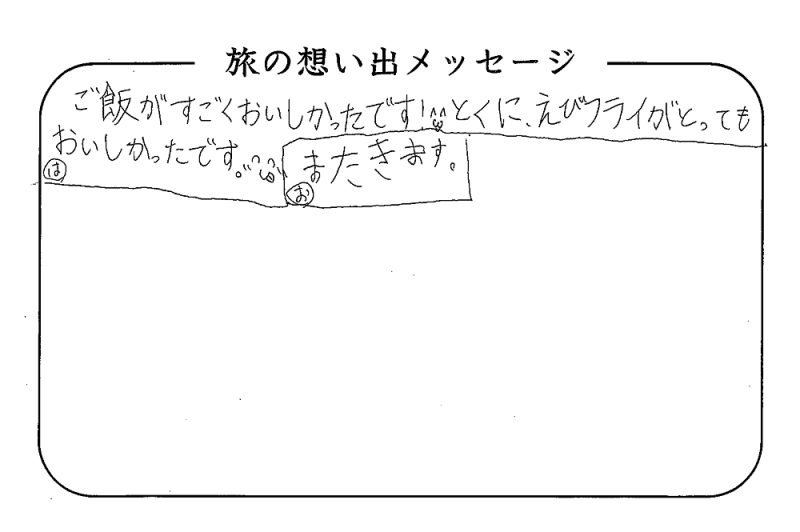 旅の想い出メッセージ
ご飯がすごくおいしかったです!とくに、えびフライがとっても
おいしかったです。
は
またきます。
お